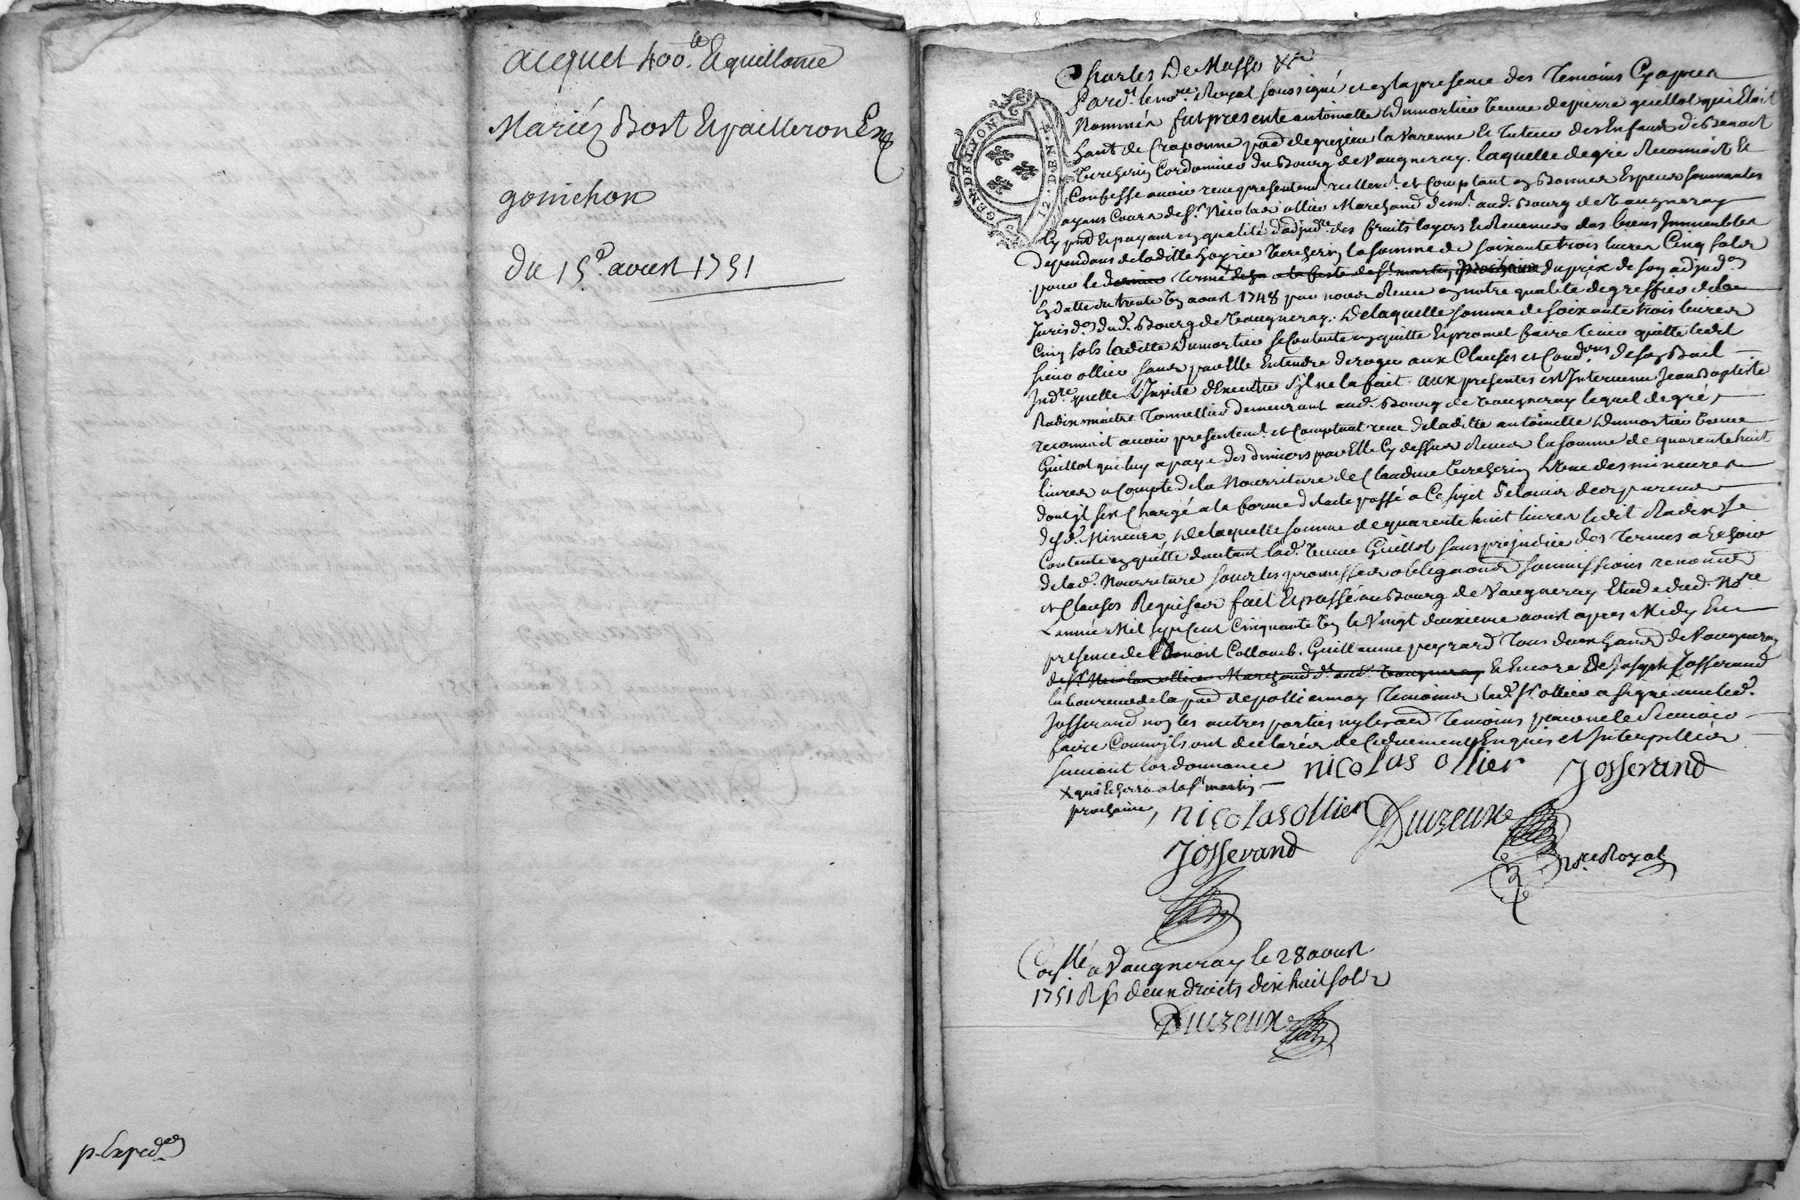 acquet 400.lt Equillome
Mariéz Bost Epailleron Ex
gonichon
du 15e. avril 1751
p. Exped.on
GEN. DE LYON
12. D. EN. 8
Charles De Masso
Pard.t le no.re Royal soussigné et en la presence des Temoins Cy apres
Nommés fut presente antoinette Dumortier veuve de pierre guillot qui Etoit
hant de Craponne par.se de grezieu la varenne Et Tutrice des Enfans de Benoit
Cordonnier du Bourg de Vaugneray. Laquelle de gré Reconnoit Et
Confesse avoir reçu presentem.t reellem.t et Comptant en Bonnes Especes sonnantes
ayant Cours de s.r Nicolas ollier Marchand dem.t aud. Bourg de Vaugneray
Cy p.nt Et payant en qualité d'adjud.re des fruits loyers Et Revenus des biens Immeubles
dependans de la ditte hoyrie la somme de soixante trois livres Cinq sols
pour le dernier terme de la feste de s.t martin prochaine du prix de son adjud.on
En datte du trente un aoust 1748 par nous Receue en notre qualité de greffier de la
Jurisd.on dud. Bourg de Vaugneray. De laquelle somme de soixante trois livres
Cinq sols laditte Dumortier se Contente en quitte Et promet faire Tenir quitte ledit
sieur ollier sans par Elle Entendre deroger aux Clauses et Cond.ons de son Bail
Jud.re quelle L'Invite d'Executer s'il ne la fait. aux presentes est Intervenu Jean Baptiste
Radix maitre Tonnellier demeurant aud. Bourg de Vaugneray lequel de gré
reconnoit avoir presentem.t et Comptant receu de laditte antoinette Dumortier veuve
Guillot qui luy a payé des deniers par Elle Cy dessus Receus la somme de quarente huit
livres a Compte de la Nourriture de Claudine L'une des mineures
dont il s'est Chargé a la forme de l'acte passé a Ce sujet de l'avis des parens
desd. Mineurs, De laquelle somme de quarente huit livres ledit Radix se
Contente en quitte d'autant lad. veuve Guillot sans prejudice des Termes a Echoir
de lad. Nourriture sous les promesses obligaons soumissions renonc.ons
et Clauses Requises fait Et passé au Bourg de Vaugneray Etude dud. No.re
L'année Mil sept Cent Cinquante un le Vingt deuxieme aoust apres Midy En
presence de Benoit Collomb. Guillaume peyrard Tous deux de Vaugneray
de s.r Nicolas ollier Marchand d. aud. Vaugneray Et Encore de Joseph Josserand
laboureur de la par.se de pollionnay Temoins led. s.r ollier a signé avec led.
Josserand non les autres parties ny lesd. Temoins pour ne le sçavoir
faire Comm'ils ont declaré de Ce duement Enquis et Interpellés
suivant l'ordonnance nicolas ollier Josserand
x qui Echerra a la s.t martin
prochaine, nicolas ollier Duizeux
Josserand
N.re Royal
Con.llé a Vaugneray le 28 aoust
1751 R.p deux droits dix huit sols
Duizeux